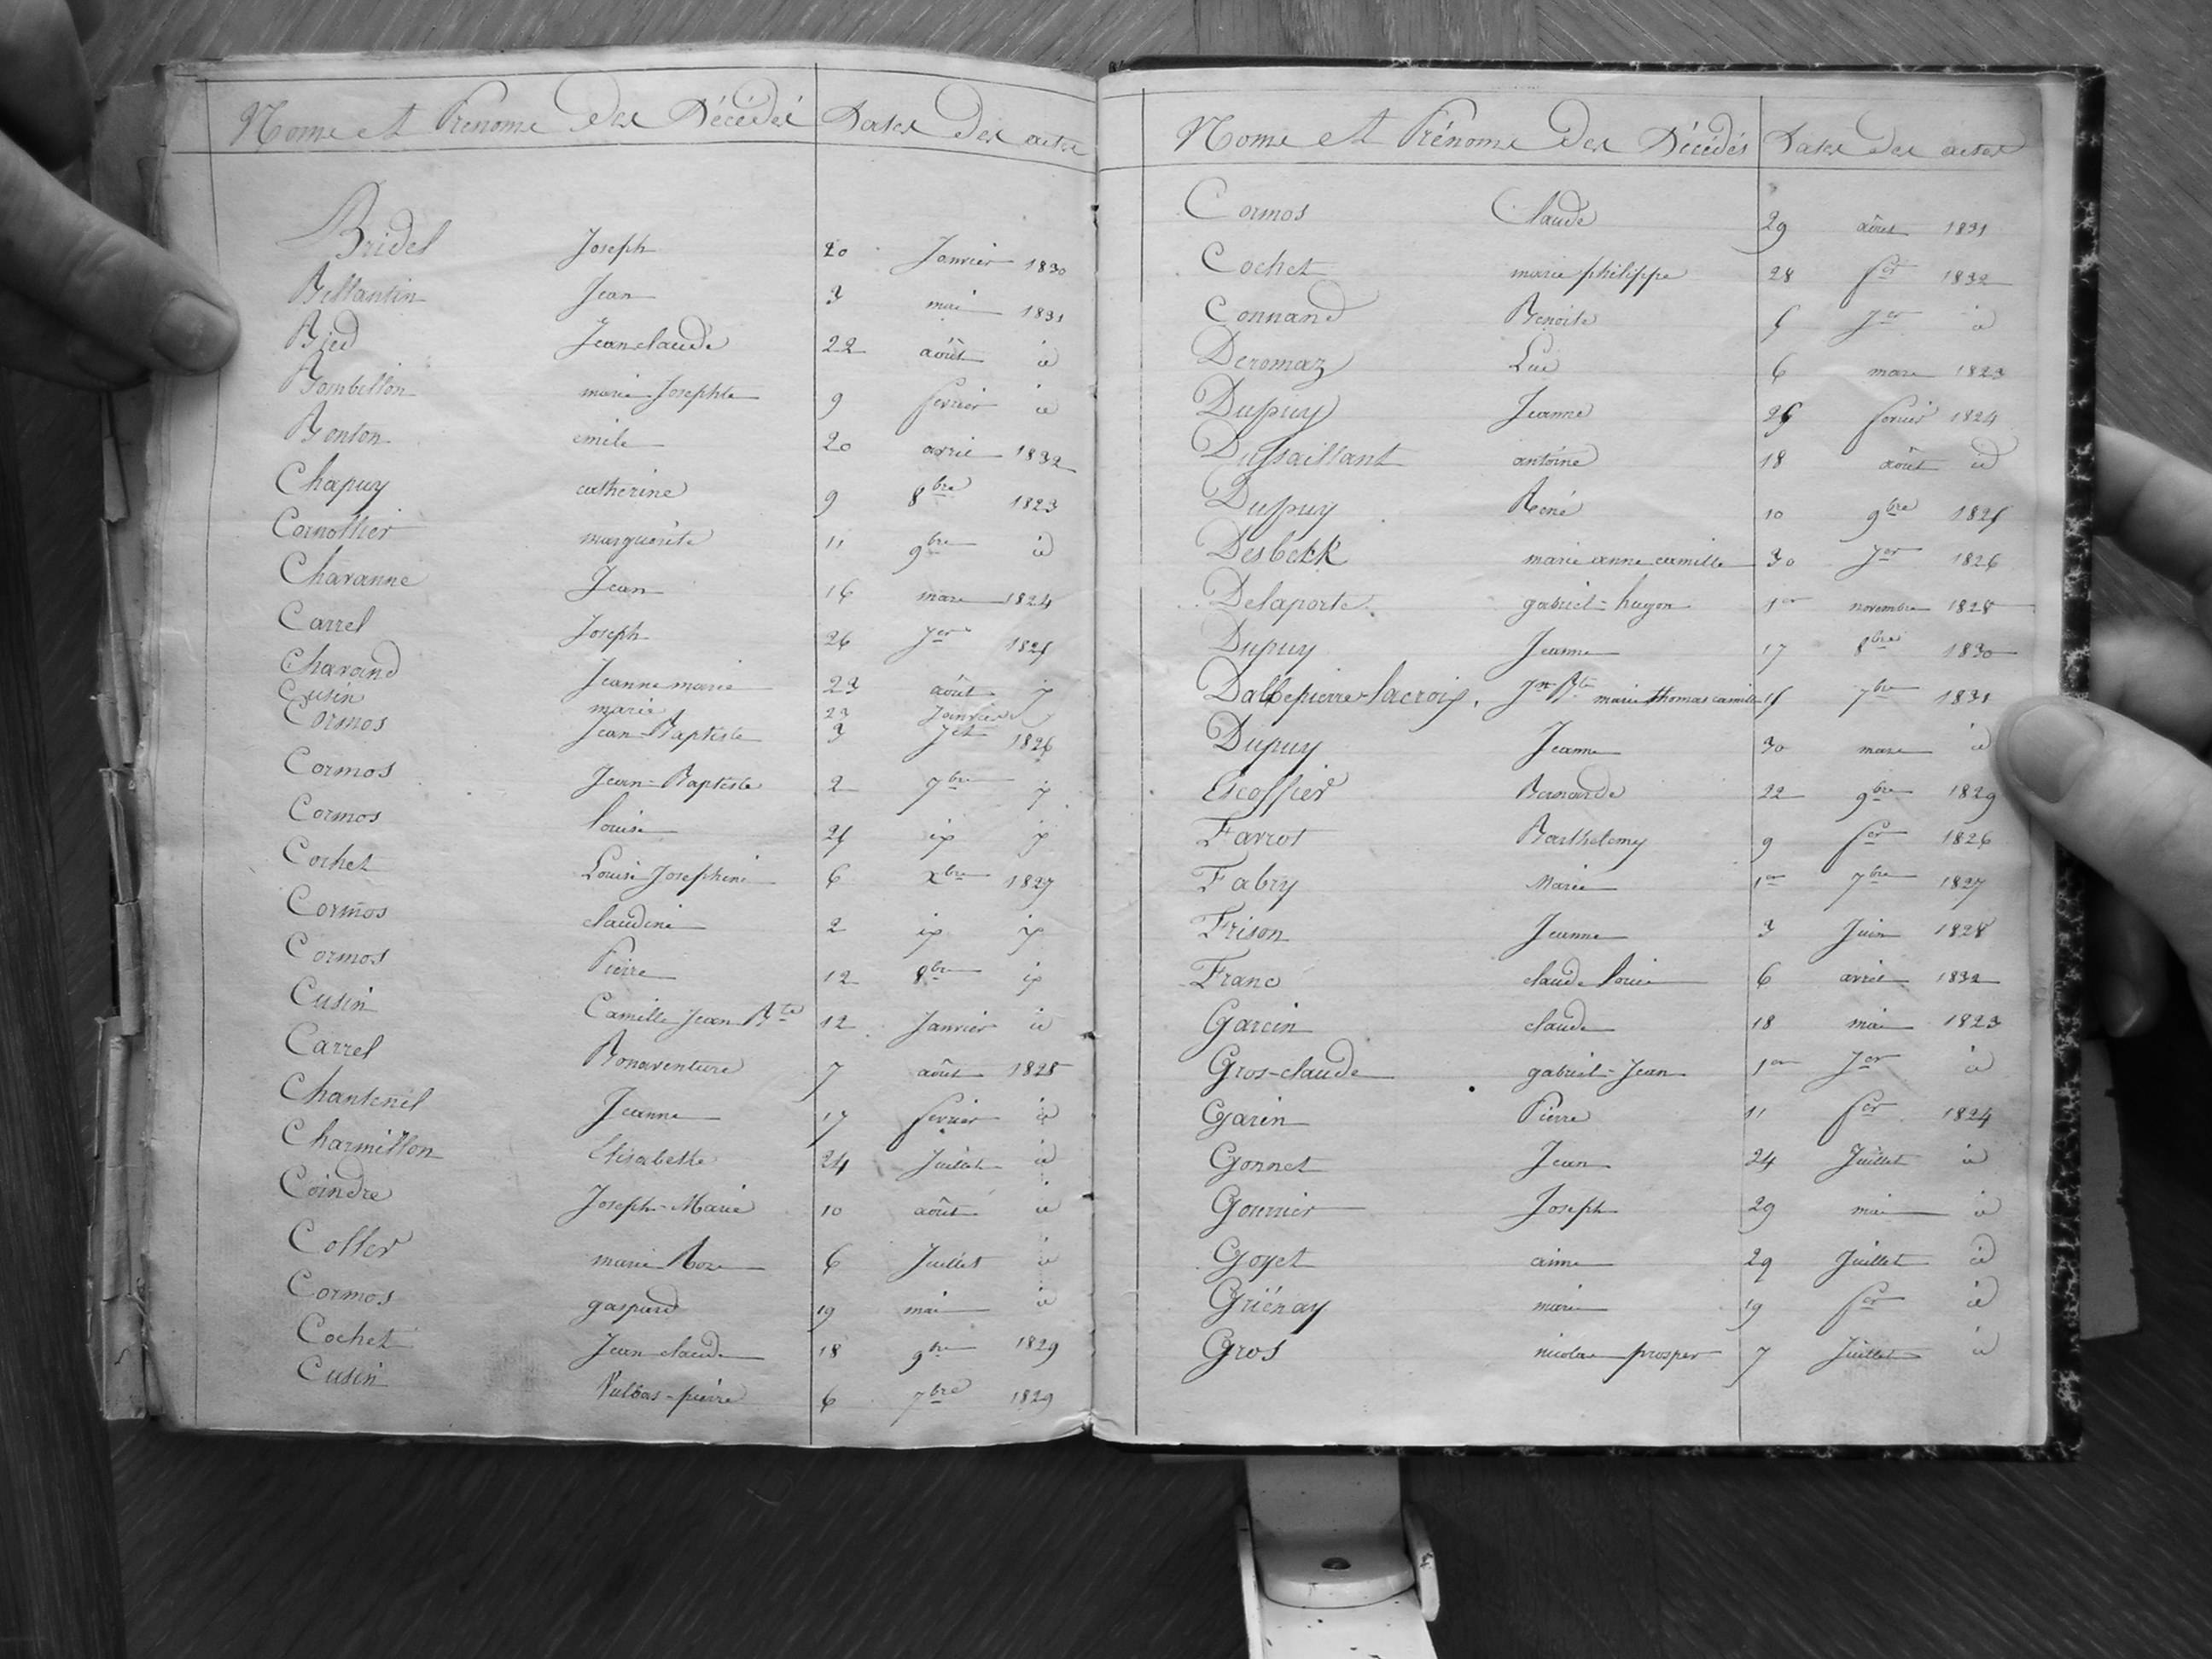 Noms et Prénoms Des Décédés Dates Des actes
Bridel Joseph 20 Janvier 1830
Bellantin Jean 3 mai 1831
Bied Jean claude 22 août id
Bombellon marie Josephte 9 fevrier id
Bonton emile 20 avril 1832
Chapuy catherine 9 8bre 1823
Cornollier marguerite 11 9bre id
Chavanne Jean 16 mars 1824
Carrel Joseph 26 Jer 1825
Chavand Jeanne marie 23 août
Cusin marie 23 Janvier
Cormos Jean-Baptiste 3 Jet 1826
Cormos Jean-Baptiste 2 7bre
Cormos louise 25
Cochet Louise Josephine 6 Xbre 1827
Cormos claudine 2
Cormos Pierre 12 8bre
Cusin Camille Jean Bte 12 Janvier id
Carrel Bonaventure 7 août 1828
Chantenil Jeanne 17 fevrier id
Charmillon Elisabethe 24 Juillet id
Coindre Joseph-Marie 10 août id
Coller marie Roze 6 Juillet id
Cormos gaspard 19 mai id
Cochet Jean claude 18 9bre 1829
Cusin Vulbas-pierre 6 7bre 1829
Noms et Prénoms Des Décédés Dates Des actes
Cormos Claude 29 août 1831
Cochet marie philippe 28 fer 1832
Connand Benoite 5 Jer id
Deromaz Luc 6 mars 1823
Dupuy Jeanne 25 fevrier 1824
Dussaillant antoine 18 août id
Dupuy Réné 10 9bre 1825
Desbekk marie anne camille 30 Jer 1826
Delaporte gabriel-hugon 1er novembre 1828
Dupuy Jeanne 17 8bre 1830
Dallepierre-lacroix Jn Bte marie thomas camille 15 7bre 1831
Dupuy Jeanne 30 mars id
Escoffier Bernarde 22 9bre 1829
Favrot Barthelemy 9 fer 1826
Fabry Marie 1er 7bre 1827
Frison Jeanne 3 Juin 1828
Franc claude louis 6 avril 1832
Garcin claude 18 mai 1823
Gros-claude gabriel-Jean 1er Jer id
Garin Pierre 11 fer 1824
Gonnet Jean 24 Juillet id
Gournier Joseph 29 mai id
Goyet aimé 29 Juillet id
Griénay marie 19 fer id
Gros nicolas prosper 7 Juillet id